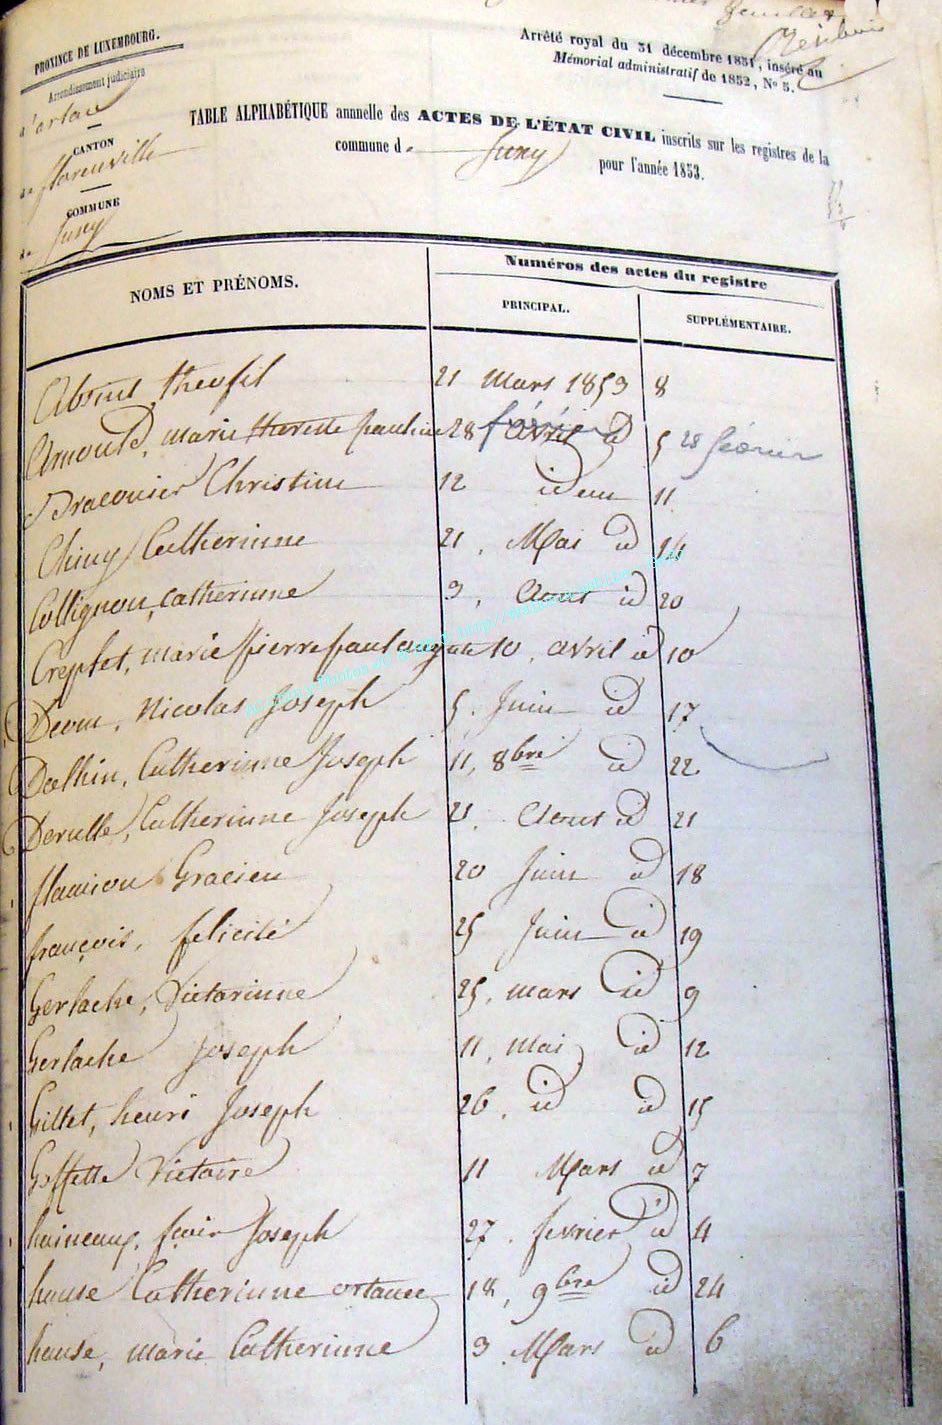 PROVINCE DE LUXEMBOURG.
Arrondissement judiciaire
d'arlon
CANTON
de florenville
COMMUNE
de Juny
Arrêté royal du 31 décembre 1851, inséré au
Mémorial administratif de 1852, No 5.
TABLE ALPHABÉTIQUE annuelle des ACTES DE L'ÉTAT CIVIL inscrits sur les registres de la
commune de Juny pour l'année 1853.
NOMS ET PRÉNOMS. Numéros des actes du registre
PRINCIPAL. SUPPLÉMENTAIRE.
theofil 21 Mars 1853 8
Arnould, marie therese pauline 28 avril id 5 28 février
Braconier Christine 12 idem 11
Chiny Catherinne 21, Mai id 14
Collignon, catherinne 3, Aout id 20
Crepfet, marie pierre paul 10, avril id 10
Nicolas Joseph 5. Juin id 17
Catherinne Joseph 11, 8bre id 22
Derulle, Catherinne Joseph 21, Aout id 21
flamion Gracien 20 Juin id 18
françois, felicité 25 Juin id 19
Gerlache, Victorinne 25, mars id 9
Gerlache Joseph 11, mai id 12
Gillet, henri Joseph 26, id id 15
Goffette Victoire 11 Mars id 7
haineaux, Joseph 27. fevrier id 4
hause Catherinne ortance 18, 9bre id 24
hause, marie Catherinne 3. Mars id 6